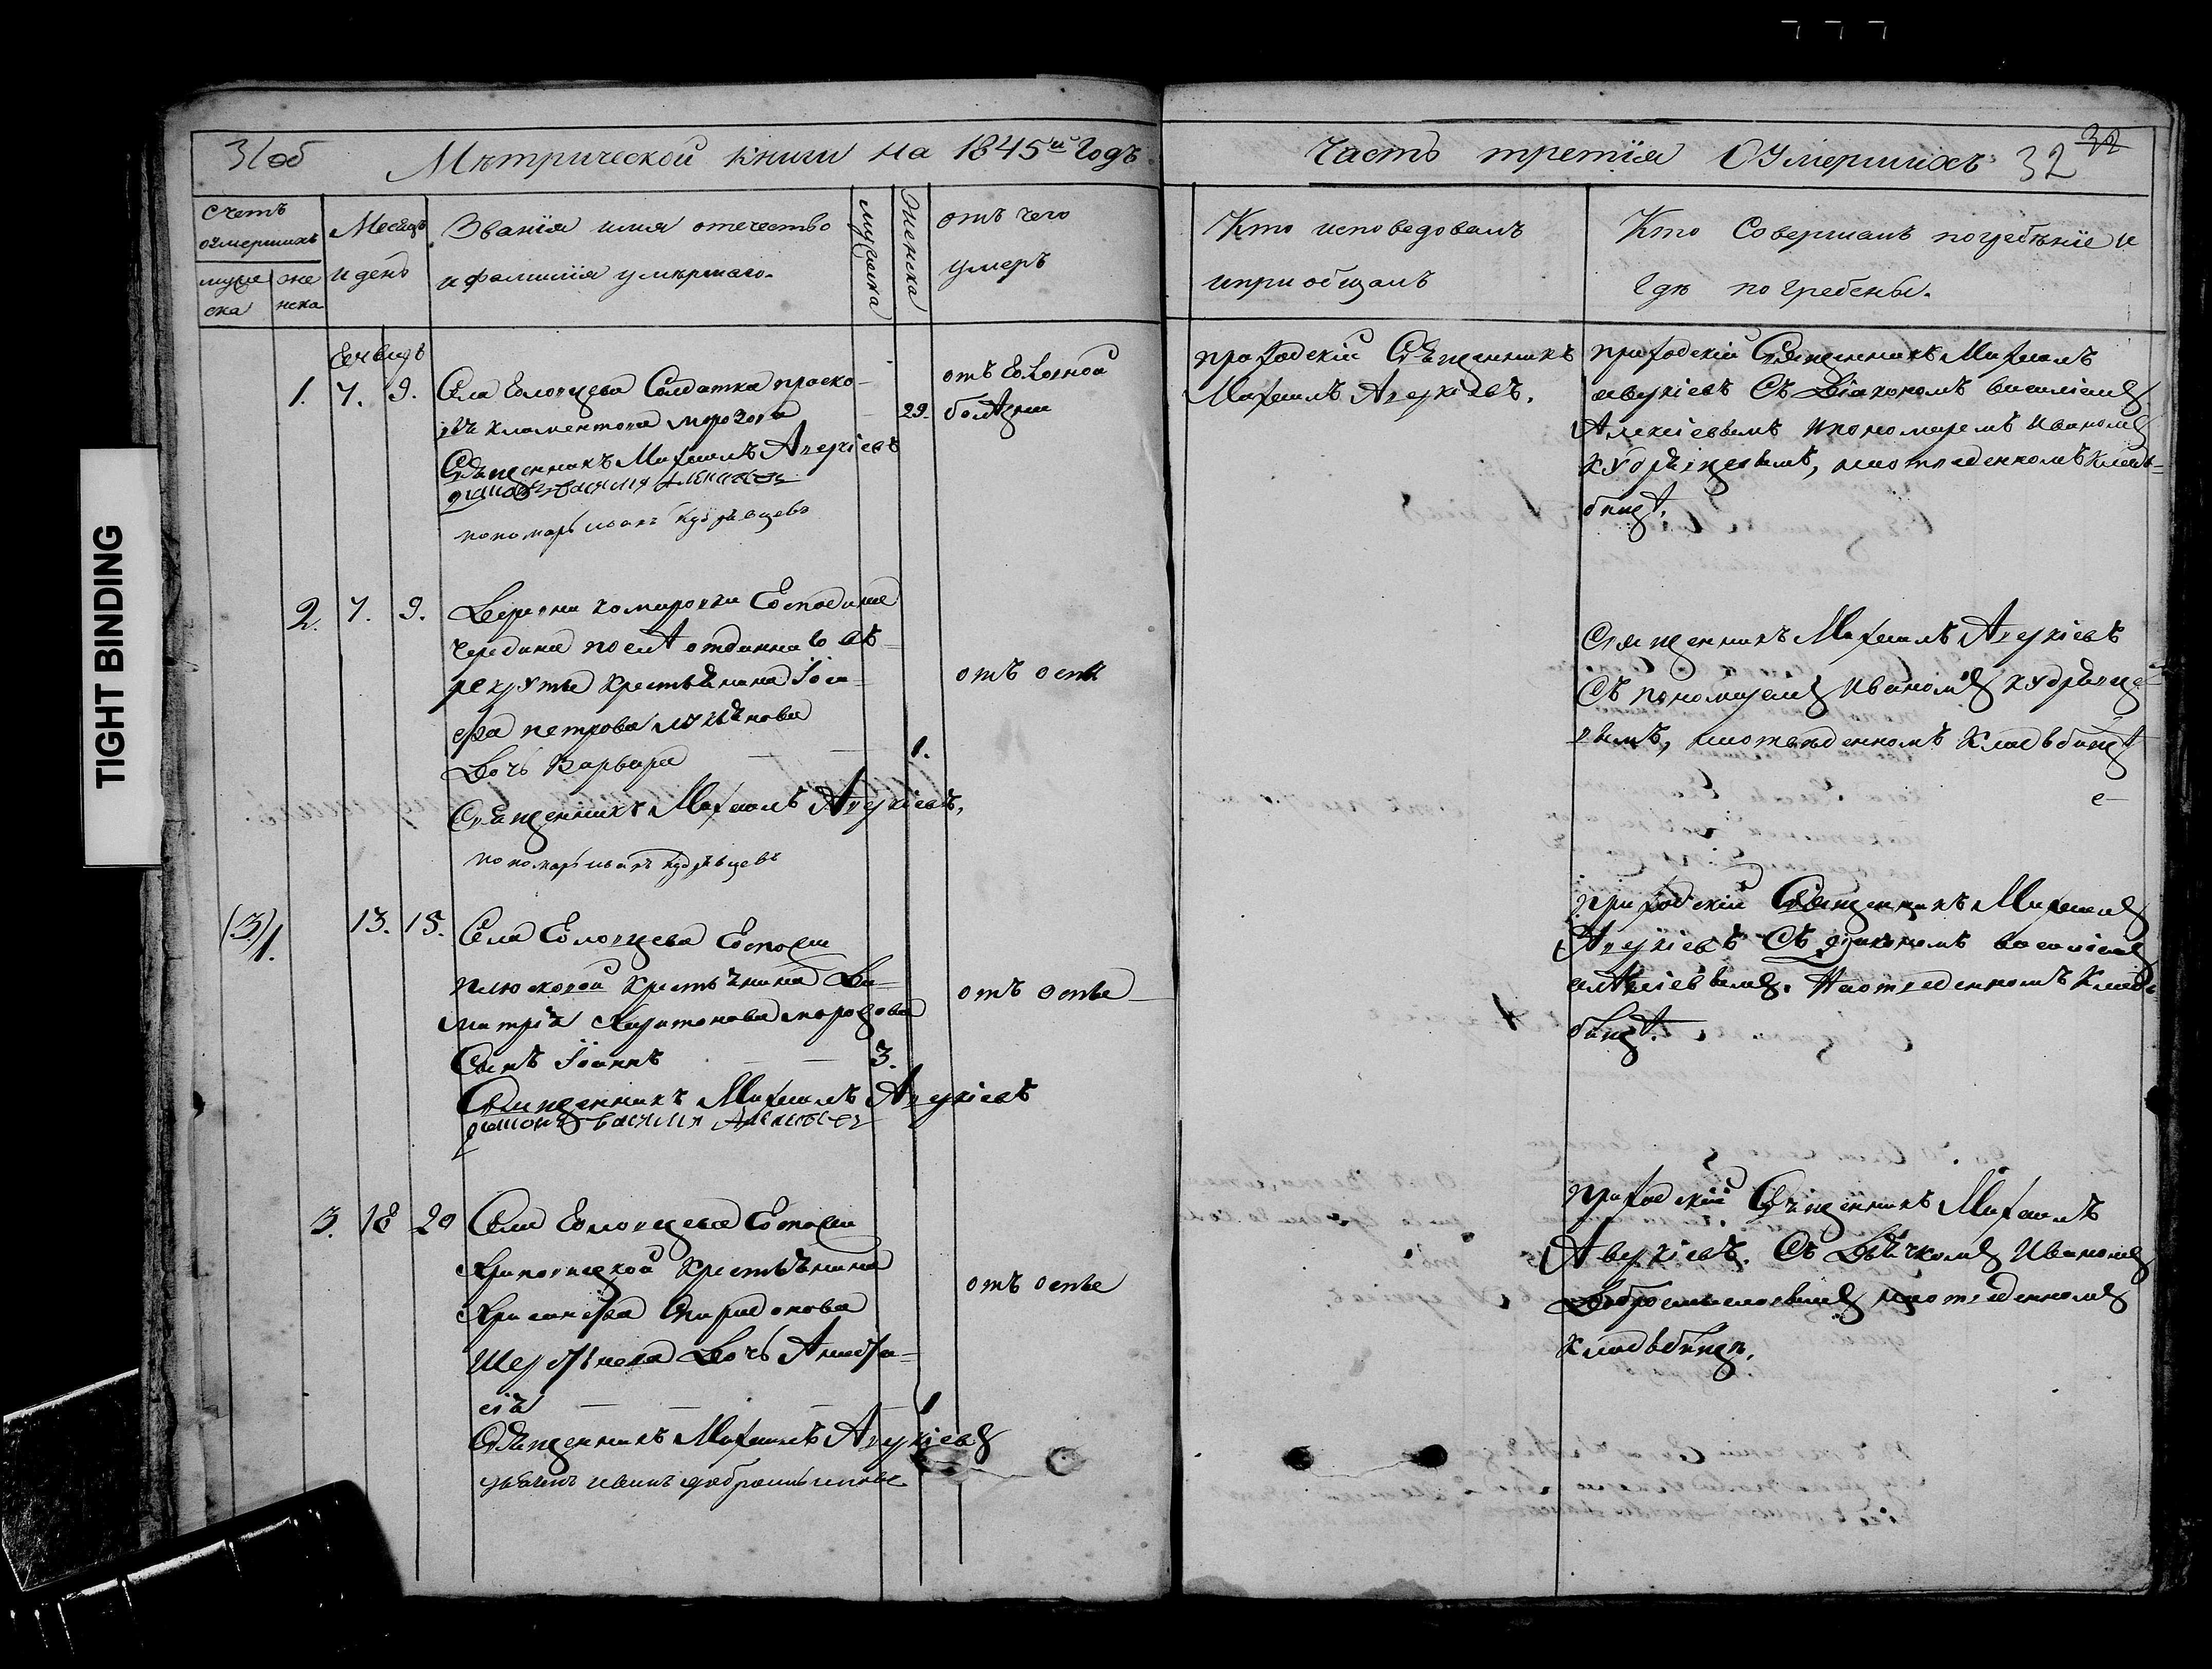 31 об
Мѣтрической книги на 1845й Годъ
Часть третїя О Умершихъ 32
счетъ
оумершихъ
муже
ска
же
нска
Месяцъ
и день
Званїя имя отечество
и фамилїя умѣршаго.
мужеска
женска
отъ чего
умеръ
Кто исповедовалъ
и приобщалъ
Кто Совершалъ погребѣнїе и
Где погребены.
Генваръ
1. 7. 9. Села Солдатка праско-
Климентова морозова 29.
Священникъ Михаилъ Аверкіевъ
диаконъ василий
пономарь иванъ кудрявцевъ
отъ Головной
болезни
приходскій Священникъ
Михаилъ Аверкіевъ.
приходскій Священникъ Михаилъ
аверкіевъ Съ Діакономъ василіемъ
Алексіевымъ и пономаремъ иваномъ
кудрявцевымъ, наотведенномъ клад-
бищѣ.
2. 7. 9. Деревни комировки Господина
Чередина послѣ отданнаго въ
рекруты крестьянина Іоси-
фа петрова
Дочь Варвара 1.
Священникъ Михаилъ Аверкіевъ,
пономарь иванъ кудрявцевъ
отъ оспы
Священникъ Михаилъ Аверкіевъ
Съ пономаремъ иваномъ кудрявце-
вымъ, наотведенномъ кладбищѣ
(3)/1. 13. 15. Села Госпожи
плюсковой крестьянина Ди-
митрія Харитонова морозова
Сынъ Іоаннъ 3.
Священникъ Михаилъ Аверкіевъ
диаконъ василий
отъ оспы
приходскій Священникъ Михаилъ
Аверкіевъ Съ діакономъ василіемъ
алексіевымъ. Наотведенномъ клад-
бищѣ.
3. 18 20 Села Госпожи
крестьянина
Хрисанфа Спиридонова
Дочь Анаста-
сія 1
Священникъ Михаилъ Аверкіевъ
дьячокъ иванъ добромысловъ
отъ оспы
приходскій Священникъ Михаилъ
Аверкіевъ. Съ Дьячкомъ Иваномъ
Добромысловымъ наотведенномъ
кладбищѣ.
TIGHT BINDING